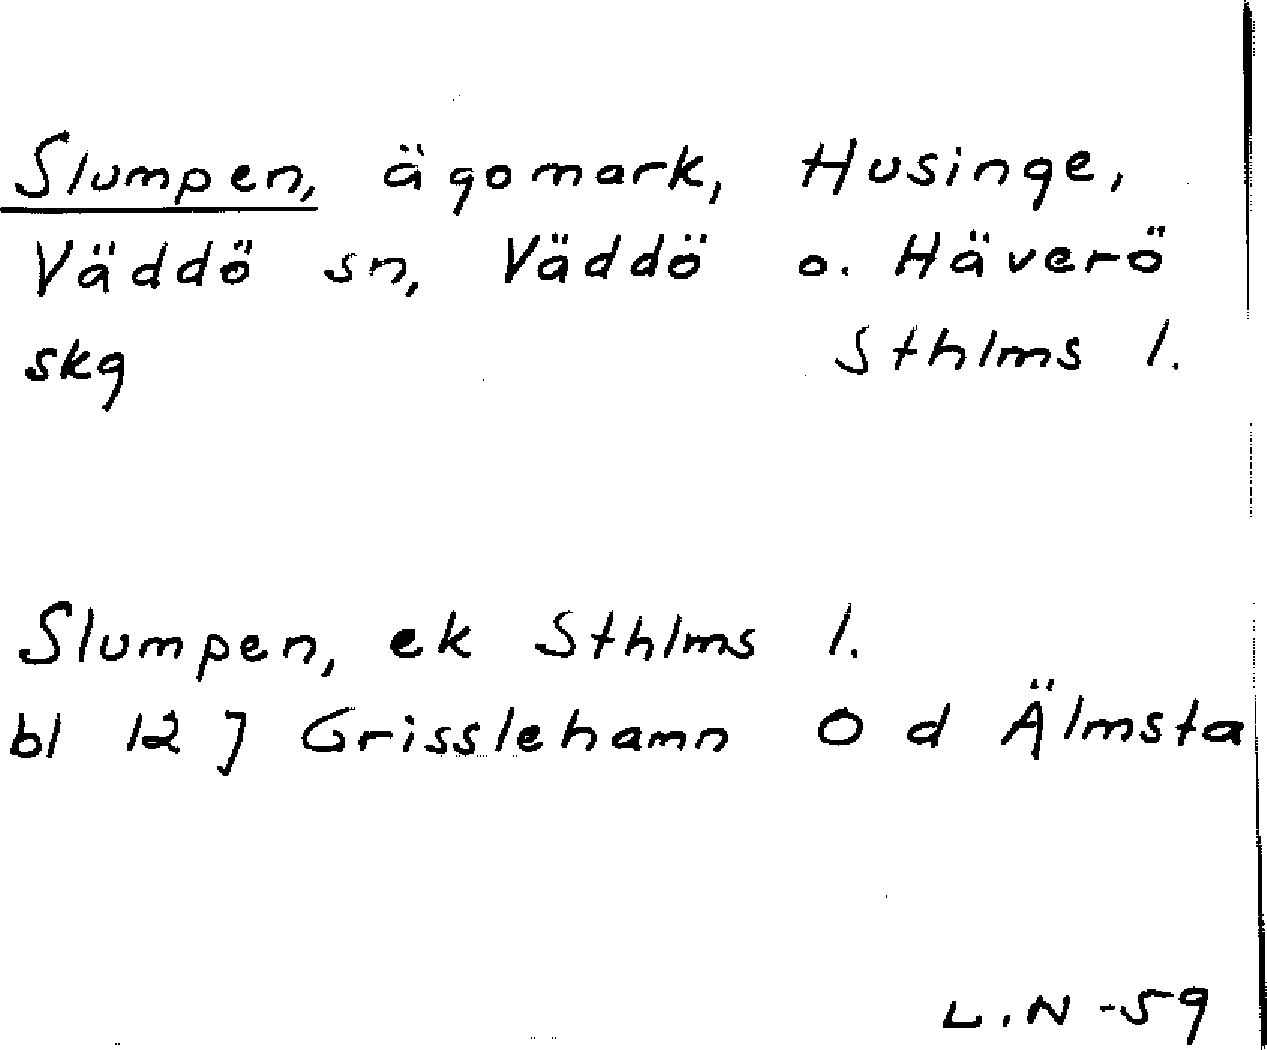 Slumpen, ägomark, Husinge,
Väddö sn, Väddö o. Häverö
skg Sthlms l.
Slumpen, ek Sthlms l.
bl 12 J Grisslehamn O d Älmsta
L.N -59